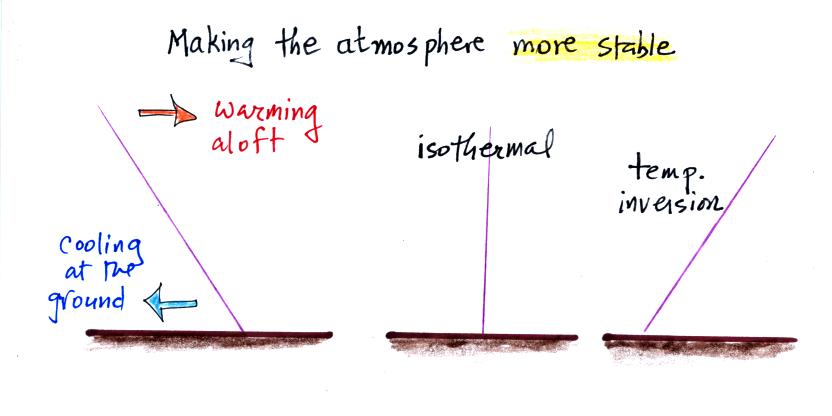 Making the atmosphere more stable
warming
aloft
cooling
at the
ground
isothermal
temp.
inversion